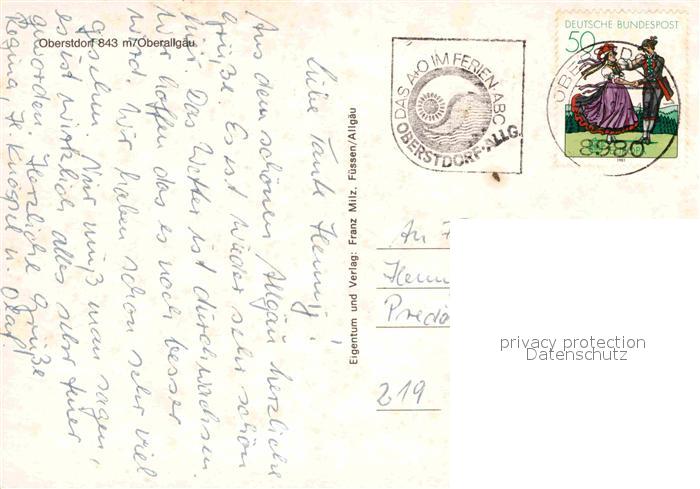 Oberstdorf 843 m/Oberallgäu
Liebe Tante Henny!
Aus dem schönen Allgäu herzliche
Grüße. Es ist wieder sehr schön
hier. Das Wetter ist durchwachsen.
Wir hoffen das es noch besser
wird. Wir haben schon sehr viel
gesehen. Nur muß man sagen,
es ist wirklich alles sehr teuer
geworden. Herzliche Grüße
Regina, u. Olaf
Eigentum und Verlag: Franz Milz. Füssen/Allgäu
DAS A+O IM FERIEN-ABC
OBERSTDORF·ALLG.
DEUTSCHE BUNDESPOST
50
OBERSTDORF
8980
1981
An
Henn
219
privacy protection
Datenschutz